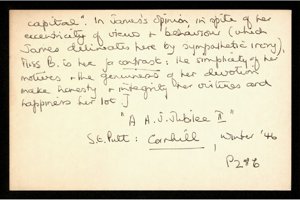 capital". In James's opinion, in spite of her
eccentricity of views & behaviour (which
James delineates here by sympathetic irony),
Miss B. is here a contrast: the simplicity of her
motives & the genuineness of her devotion
make honesty & integrity her virtues and
happiness her lot ]
"A H. J. Jubilee II"
S.E. Putt: Cornhill, Winter '46
p286